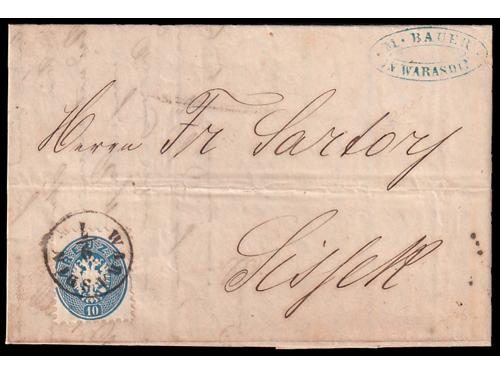 M. BAUER
IN WARASDIN
Herrn Fr Sartory
Sissek
10